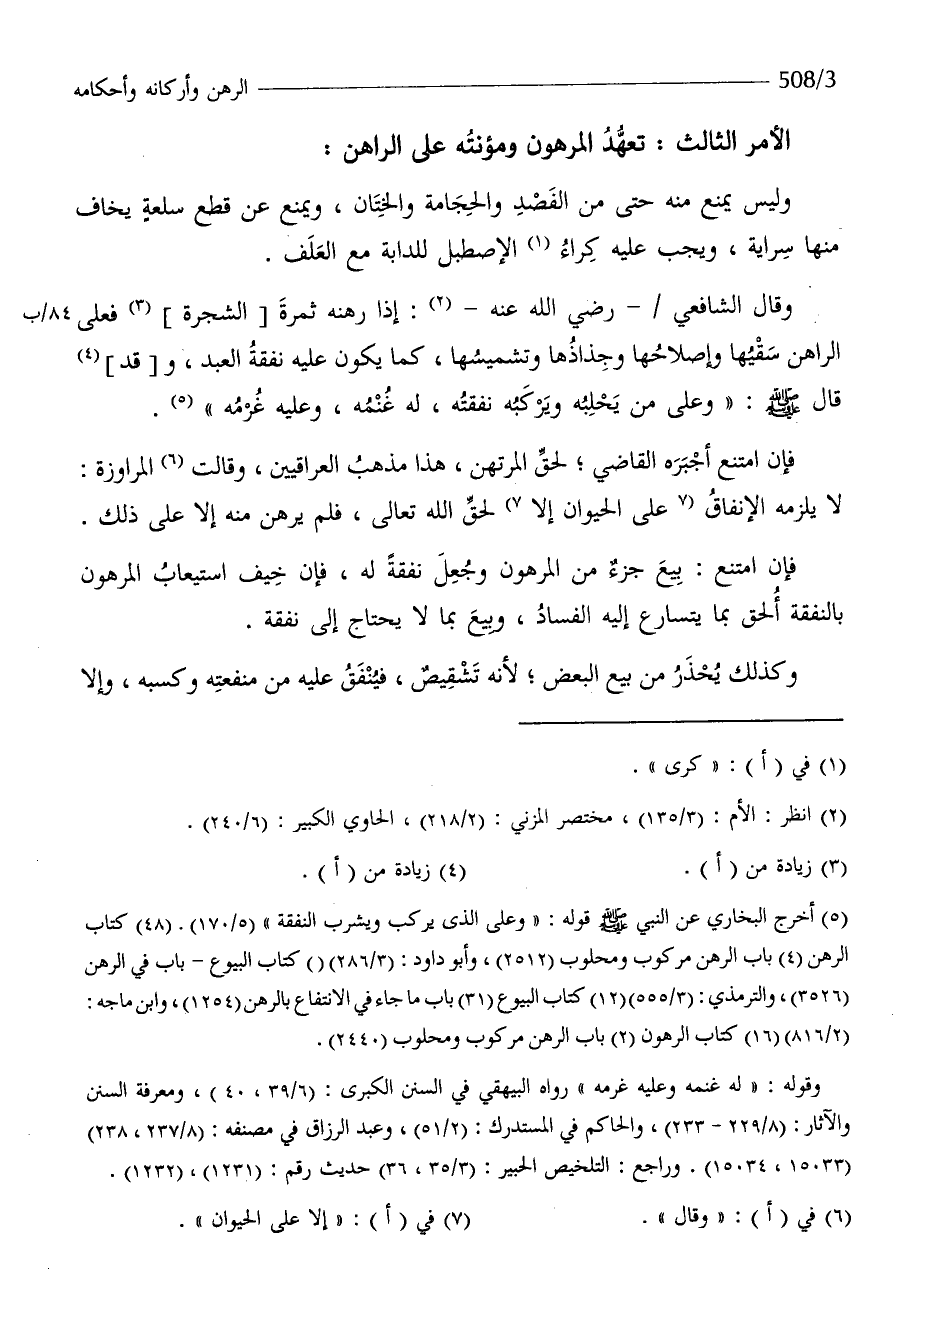 508/3 الرهن وأركانه وأحكامه
الأمر الثالث : تعهُّدُ المرهون ومؤنتُه على الراهن :
وليس يمنع منه حتى من الفَصْدِ والحِجَامة والخِتَان ، ويمنع عن قطع سلعةٍ يخاف
منها سِراية ، ويجب عليه كِراءُ (١) الإصطبل للدابة مع العَلَف .
وقال الشافعي / – رضي الله عنه – (٢) : إذا رهنه ثمرةَ [ الشجرة ] (٣) فعلى ٨٤/ب
الراهن سَقْيُها وإصلاحُها وجِذاذُها وتشميسُها ، كما يكون عليه نفقةُ العبد ، و [ قد ] (٤)
قال ﷺ : « وعلى من يَحْلِبُه ويَرْكَبُه نفقتُه ، له غُنْمُه ، وعليه غُرْمُه » (٥) .
فإن امتنع أجْبَرَه القاضي ؛ لحقِّ المرتهن ، هذا مذهبُ العراقيين ، وقالت (٦) المراوزة :
لا يلزمه الإنفاقُ (٧ على الحيوان إلا ٧) لحقِّ الله تعالى ، فلم يرهن منه إلا على ذلك .
فإن امتنع : بِيعَ جزءٌ من المرهون وجُعِلَ نفقةً له ، فإن خِيف استيعابُ المرهون
بالنفقة أُلحق بما يتسارع إليه الفسادُ ، وبِيعَ بما لا يحتاج إلى نفقة .
وكذلك يُحْذَرُ من بيع البعض ؛ لأنه تَشْقِيصٌ ، فيُنْفَقُ عليه من منفعتِه وكسبه ، وإلا
(١) في ( أ ) : « كرى » .
(٢) انظر : الأم : (١٣٥/٣) ، مختصر المزني : (٢١٨/٢) ، الحاوي الكبير : (٢٤٠/٦) .
(٣) زيادة من ( أ ) . (٤) زيادة من ( أ ) .
(٥) أخرج البخاري عن النبي ﷺ قوله : « وعلى الذى يركب ويشرب النفقة » (١٧٠/٥) . (٤٨) كتاب
الرهن (٤) باب الرهن مركوب ومحلوب (٢٥١٢) ، وأبو داود : (٢٨٦/٣) () كتاب البيوع – باب في الرهن
(٣٥٢٦) ، والترمذي : (٥٥٥/٣) (١٢) كتاب البيوع (٣١) باب ما جاء في الانتفاع بالرهن (١٢٥٤) ، وابن ماجه :
(٨١٦/٢) (١٦) كتاب الرهون (٢) باب الرهن مركوب ومحلوب (٢٤٤٠) .
وقوله : « له غنمه وعليه غرمه » رواه البيهقي في السنن الكبرى : (٣٩/٦ ، ٤٠ ) ، ومعرفة السنن
والآثار : (٢٢٩/٨ – ٢٣٣) ، والحاكم في المستدرك : (٥١/٢) ، وعبد الرزاق في مصنفه : (٢٣٧/٨ ، ٢٣٨)
(١٥٠٣٣ ، ١٥٠٣٤) . وراجع : التلخيص الحبير : (٣٥/٣ ، ٣٦) حديث رقم : (١٢٣١) ، (١٢٣٢) .
(٦) في ( أ ) : « وقال » . (٧) في ( أ ) : « إلا على الحيوان » .